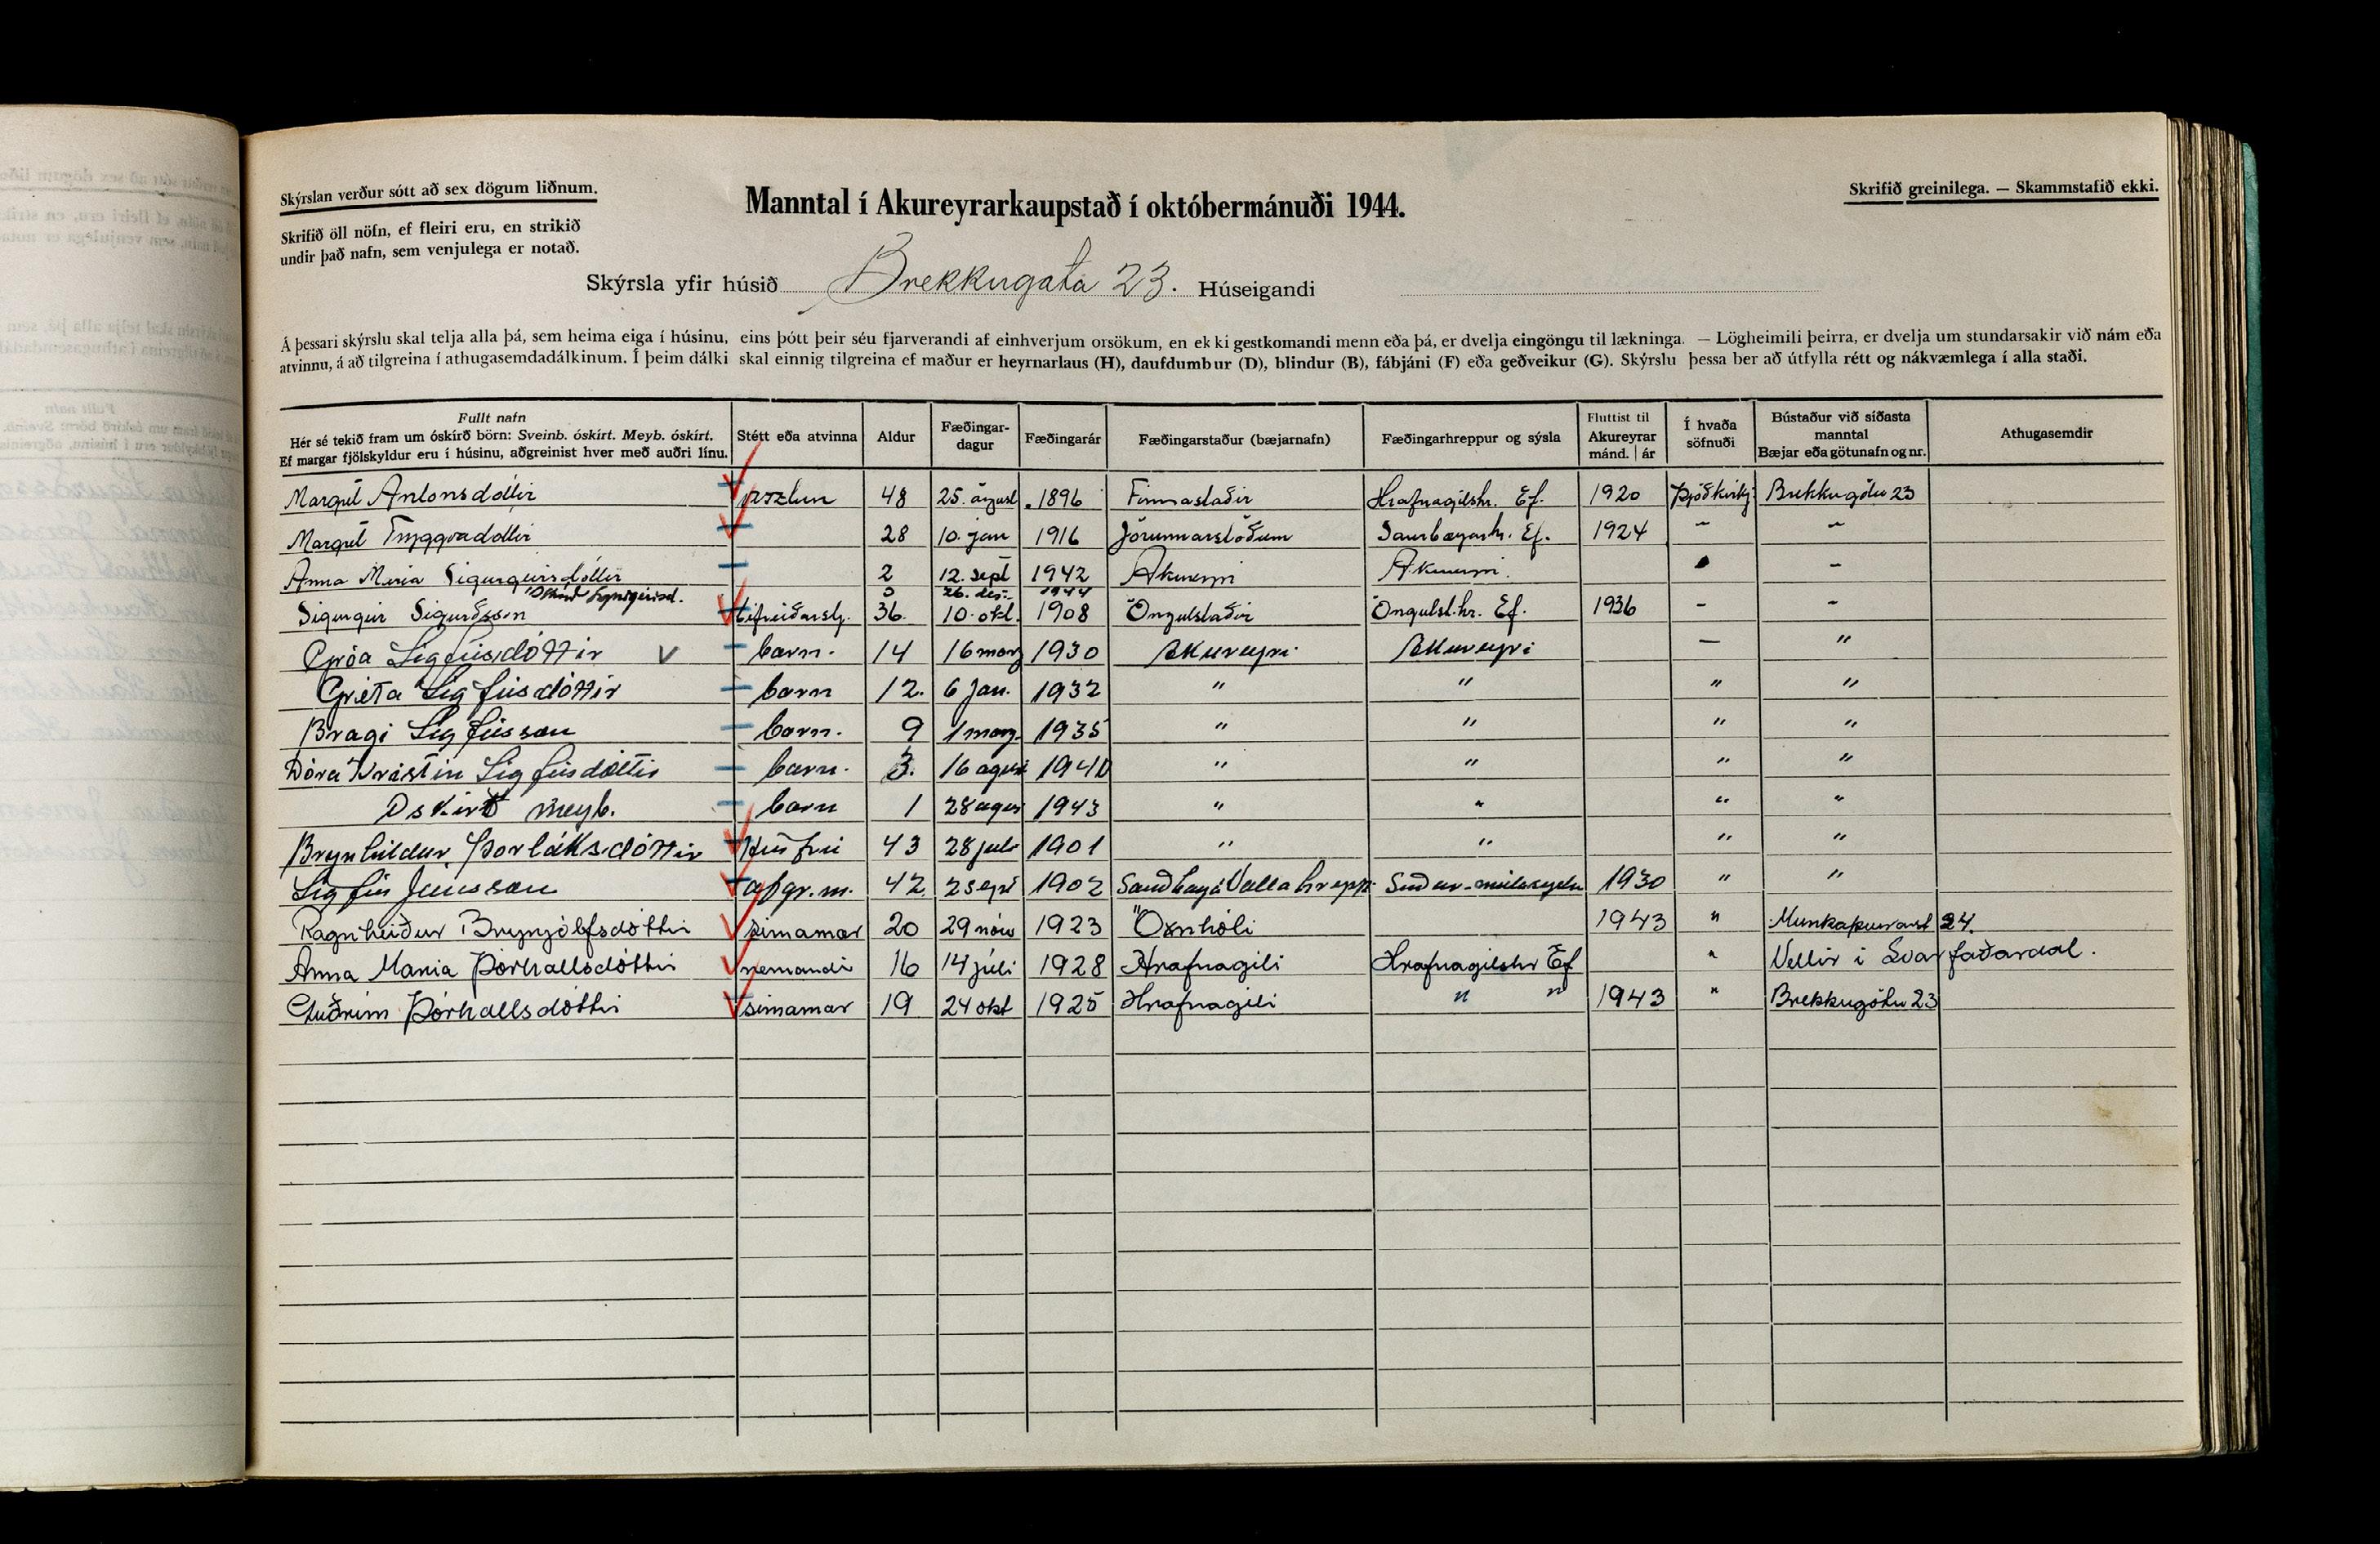 Skýrslan verður sótt að sex dögum liðnum.
Manntal í Akureyrarkaupstað í októbermánuði 1944.
Skrifið greinilega. — Skammstafið ekki.
Skrifið öll nöfn, ef fleiri eru, en strikið
undir það nafn, sem venjulega er notað.
Skýrsla yfir húsið Brekkugata 23. Húseigandi
Á þessari skýrslu skal telja alla þá, sem heima eiga í húsinu, eins þótt þeir séu fjarverandi af einhverjum orsökum, en ekki gestkomandi menn eða þá, er dvelja eingöngu til lækninga. — Lögheimili þeirra, er dvelja um stundarsakir við nám eða
atvinnu, á að tilgreina í athugasemdadálkinum. Í þeim dálki skal einnig tilgreina ef maður er heyrnarlaus (H), daufdumbur (D), blindur (B), fábjáni (F) eða geðveikur (G). Skýrslu þessa ber að útfylla rétt og nákvæmlega í alla staði.
Fullt nafn
Hér sé tekið fram um óskírð börn: Sveinb. óskírt. Meyb. óskírt.
Ef margar fjölskyldur eru í húsinu, aðgreinist hver með auðri línu.
Stétt eða atvinna
Aldur
Fæðingar-
dagur
Fæðingarár
Fæðingarstaður (bæjarnafn)
Fæðingarhreppur og sýsla
Fluttist til
Akureyrar
mánd. | ár
Í hvaða
söfnuði
Bústaður við síðasta
manntal
Bæjar eða götunafn og nr.
Athugasemdir
Margrét Antonsdóttir 48 25. ágúst 1896 Finnastaðir Hrafnagilshr. Ef. 1920 Þjóðkirkj. Brekkugötu 23
Margrét Tryggvadóttir 28 10. jan 1916 Jórunnarstöðum Saurbæjarhr. Ef. 1924 " "
Anna María Sigurgeirsdóttir 2 12. sept 1942 Akureyri Akureyri. -
Óskírð Sigurgeirsd. 0 26. des. 1944
Sigurgeir Sigurðsson bifreiðarstj. 36. 10. okt. 1908 Öngulstaðir Öngulst.hr. Ef. 1936 - -
Gróa Sigfúsdóttir V barn. 14 16 marz 1930 Akureyri Akureyri — "
Gréta Sigfúsdóttir barn 12. 6 jan. 1932 " " " "
Bragi Sigfússon barn. 9 1 marz 1935 " " " "
Dóra Kristín Sigfúsdóttir barn. 3. 16 agus 1940 " " " "
Oskírt meyb. barn 1 28 agus 1943 " " " "
Brynhildur Þorláksdóttir Húsfrú 43 28 juli 1901 " " " "
Sigfús Jónsson afgr.m. 42 2 sept 1902 Sandhaga Vallahrepp Suður-múlasyslu 1930 " "
Ragnheiður Brynjólfsdóttir símamær 20 29 nóv 1923 Öxnhóli 1943 " Munkaþverárst 24.
Anna María Þórhallsdóttir nemandi 16 14 júlí 1928 Hrafnagili Hrafnagilshr Ef " Vellir í Svarfaðardal.
Guðrún Þórhallsdóttir símamær 19 24 okt 1925 Hrafnagili " " 1943 " Brekkugötu 23